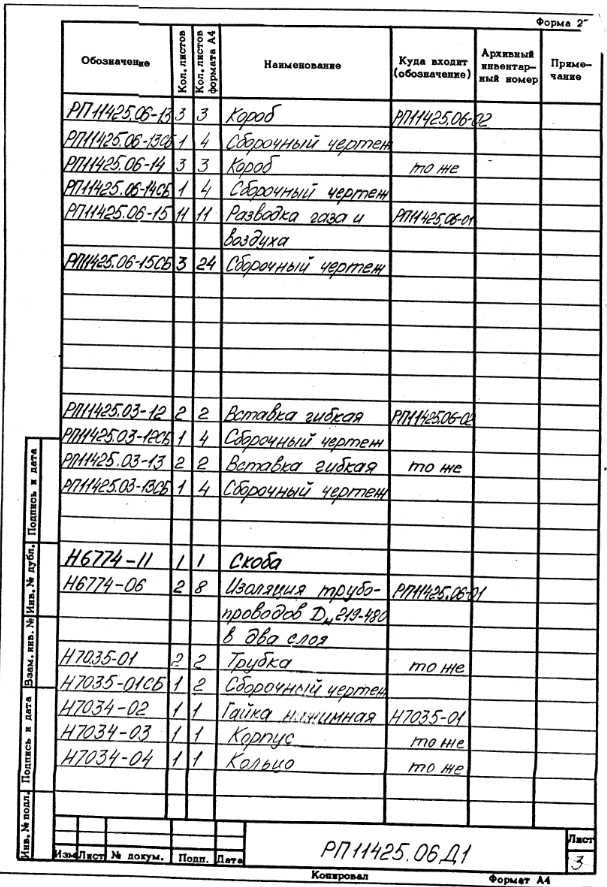 Форма 2
Обозначение Кол. листов Кол. листов формата А4 Наименование Куда входит (обозначение) Архивный инвентарный номер Примечание
РП11425.06-13 3 3 Короб РП11425.06-02
РП11425.06-13СБ 1 4 Сборочный чертеж
РП11425.06-14 3 3 Короб то же
РП11425.06-14СБ 1 4 Сборочный чертеж
РП11425.06-15 11 11 Разводка газа и РП11425.06-01
воздуха
РП11425.06-15СБ 3 24 Сборочный чертеж
РП11425.03-12 2 2 Вставка гибкая РП11425.06-02
РП11425.03-12СБ 1 4 Сборочный чертеж
РП11425.03-13 2 2 Вставка гибкая то же
РП11425.03-13СБ 1 4 Сборочный чертеж
Н6774-11 1 1 Скоба
Н6774-06 2 8 Изоляция трубо- РП11425.06-01
проводов Dн 219-480
в два слоя
Н7035-01 2 2 Трубка то же
Н7035-01СБ 1 2 Сборочный чертеж
Н7034-02 1 1 Гайка нажимная Н7035-01
Н7034-03 1 1 Корпус то же
Н7034-04 1 1 Кольцо то же
Инв. № подл. Подпись и дата Взам. инв. № Инв. № дубл. Подпись и дата
Изм Лист № докум. Подп. Дата
РП11425.06.Д1
Лист
3
Копировал Формат А4